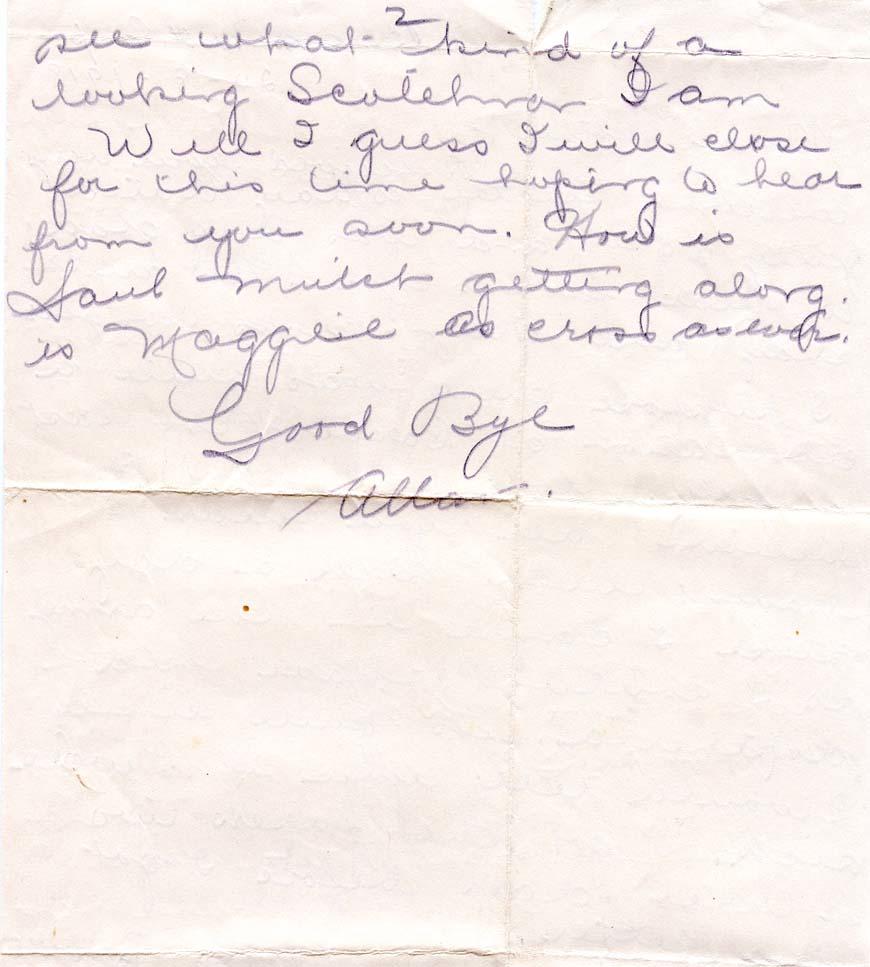 2
see what kind of a
looking Scotchman I am
Well I guess I will close
for this time hoping to hear
from you soon. How is
getting along.
is Maggie as cross as ever.
Good Bye
Allan.